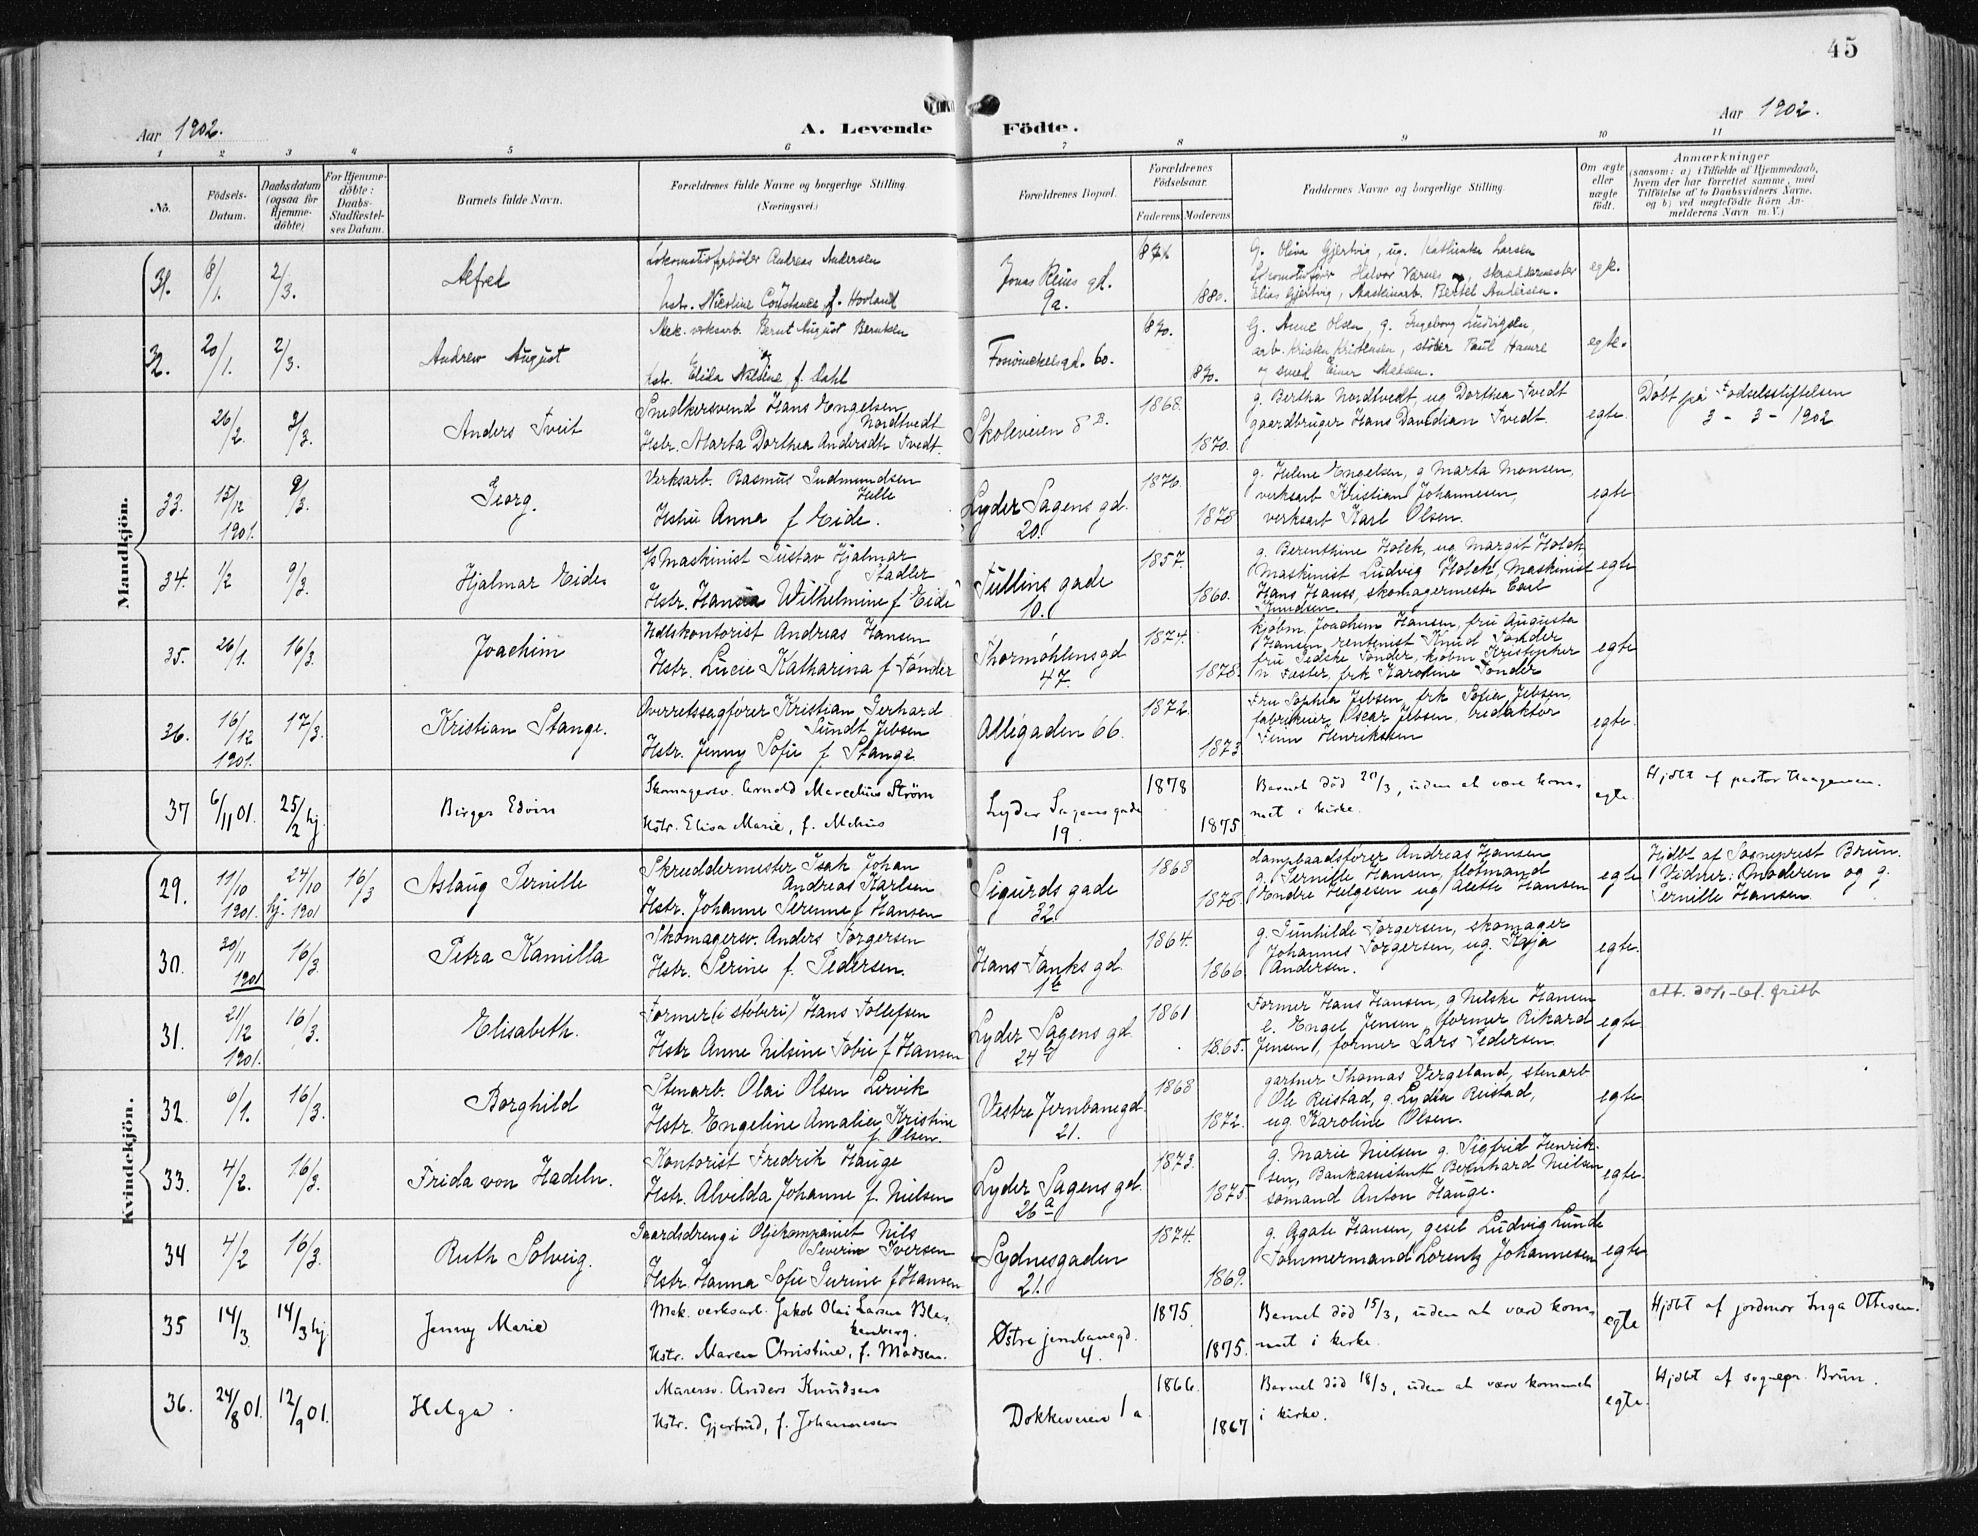 45
Aar 1902.
A. Levende Födte.
Aar 1902.
1 2 3 4 5 6 7 8 9 10 11
No.
Födsels-Datum.
Daabsdatum (ogsaa for Hjemme-döbte)
For Hjemme-döbte: Daabs-Stadfæstel-ses Datum.
Barnets fulde Navn.
Forældrenes fulde Navne og borgerlige Stilling. (Næringsvei.)
Forældrenes Bopæl.
Forældrenes Födselsaar.
Faderens Moderens
Faddernes Navne og borgerlige Stilling.
Om ægte eller uægte födt.
Anmærkninger
(saasom: a) i Tilfælde af Hjemmedaab,
hvem der har forrettet samme, med
Tilföielse af to Daabsvidners Navne.
og b) ved uægtefödte Börn An-
melderens Navn m. V.)
Mandkjön.
31. 8/1. 2/3. Alfred
Lokomotivfyrbøder Andreas Andersen
hstr. Nicoline Constance f. Hovland
Jonas Reins gd. 9a.
880.
G. Olina Gjertvig, ug. Kathinka Larsen
Lokomotivfører Halvor Værnes, skræddermester
Elias Gjertvig, Maskinarb. Bertel Andersen.
egte.
32. 20/1. 2/3. Andrew August
Mek. verksarb. Bernt August Berntsen
hstr. Elida f. Dahl
60.
870.
G. Anne Olsen, g. Ingeborg Ludvigsen,
arb. Kristen Kristensen, støber Paul Hamre
og smed Einar
egte.
26/2. 3/3. Anders Tveit
Snedkersvend Hans Engelsen Nordtvedt
Hstr. Marta Dorthea Andersdtr Tvedt.
Skoleveien 8 B.
1868.
1870.
g. Bertha Nordtvedt ug Dorthea Tvedt
gaardbruger Hans Davidsian Tvedt.
egte.
Døbt på Fødselsstiftelsen
3 - 3 - 1902
33. 15/12 1901. 9/3. Georg.
Verksarb. Rasmus Gudmundsen Helle
Hstru Anna f Eide.
Lyder Sagens gd. 20.
1876.
1878
g. Helene Engelsen, g Marta Monsen,
verksarb Kristian Johannesen,
verksarb Karl Olsen.
egte
34. 1/2 9/3. Hjalmar Eide
Maskinist Gustav Hjalmar Stadler
Hstr. Hansia Wilhelmine f Eide
Tullins gade 10.
1857.
1860.
g. Berenthine Holck, ug Margit Holck
Maskinist Ludvig Holck, Maskinist
Hans Hauss, skomagermester Carl
Knudsen.
egte
35. 26/1. 16/3. Joachim
Hdlskontorist Andreas Hansen
Hstr. Lucie Katharina f Tönder
Thormöhlens gd 47.
1874.
1878.
kjøbm. Joachim Hansen, fru Augusta
Hansen, rentenist Knud Tönder
fru Gidske Tönder, kjøbm Kristopher
n Faester, frk Karoline Tönder
egte
36. 16/12 1901. 17/3. Kristian Stange.
Overretssagfører Kristian Gerhard Sundt Jebsen
Hstr. Jenny Sofie f Stange
Allégaden 66.
1872.
1873
Fru Sophia Jebsen, frk Sofie Jebsen,
fabrikeier Oscar Jebsen, redaktör
Finn Henriksen
egte.
37 6/11 01. 25/2 hj. Birger Edvin
Skomagersv. Arnold Marcelius Strøm
Hstr. Elisa Marie, f. Mehus
Lyder Sagens gade 19.
1878
1875
Barnet død 20/3, uden at være kom-
met i kirke.
egte.
Hjdbt af pastor Haagensen.
Kvindekjön.
29. 11/10 1901. 24/10 hj. 1901 16/3 Aslaug Pernille
Skreddermester Isak Johan
Andreas Karlsen
Hstr. Johanne Serenne f Hansen
Sigurds gade 32.
1868
1878.
dampbaadsfører Andreas Hansen
g. Pernille Hansen, flotmand
Endre Helgesen ug Alette Hansen
egte
Hjdbt af Sogneprest Brun.
Vidner: Moderen og g.
Pernille Hansen
30. 30/11 1901 16/3. Petra Kamilla
Skomagersv. Anders Torgersen
Hstr. Serine f. Pedersen.
Hans Tanks gd 1b
1864.
1866
g. Gunhilde Torgersen, skomager
Johannes Torgersen, ug. Kaja
Andersen.
egte.
31. 21/12 1901. 16/3. Elisabeth.
Former (i støberi) Hans Tollefsen
Hstr Anne Nilsine Tobie f Hansen
Lyder Sagens gd 24
1861
1865.
Former Hans Hansen, g Nilske Hansen
e. Engel Jensen, former Rikard
Jensen, former Lars Pedersen
egte
att.
32. 6/1. 16/3. Borghild
Stenarb. Olai Olsen Lervik
Hstr. Engeline Amalie Kristine
f. Olsen.
Vestre Jernbanegd 21.
1868
1872.
gartner Thomas Vergeland, stenarb
Ole Reistad, g. Lydia Reistad,
ug Karoline Olsen.
egte
33. 4/2. 16/3. Frida von Hadeln.
Kontorist Fredrik Hauge
Hstr. Alvilda Johanne f. Nielsen
Lyder Sagens gd. 26 a
1873.
1875
g. Marie Nielsen g. Sigfrid Henrik-
sen, Bankassistent Bernhard Nielsen
sømand Anton Hauge.
egte.
34 4/2 16/3. Ruth Solveig.
Gaardsdreng i Oljekompaniet Nils
Severin Iversen
Hstr. Hanna Sofie Gurine f Hansen
Sydnesgaden 21.
1874
1869.
g. Agate Hansen, gesel Ludvig Lunde
Tømmermand Lorentz Johannesen
egte
35 14/3. 14/3 hj Jenny Marie
Mek. verksarb. Jakob Olai Larsen Blan-
kenberg.
Hstr. Maren Christine, f. Madsen.
Østre jernbanegd. 4.
1875.
1875.
Barnet død 15/3, uden at være kom-
met i kirke.
egte
Hjdbt af jordmor Inga Ottesen.
36. 24/8 01. 12/9 01. Helga.
Murersv. Anders Knudsen
Hstr. Gjertrud, f. Johannesen
Dokkeveien 1 a
1866.
1867
Barnet død 18/3, uden at være kommet
i kirke.
egte.
Hjdbt af sognepr. Brun.